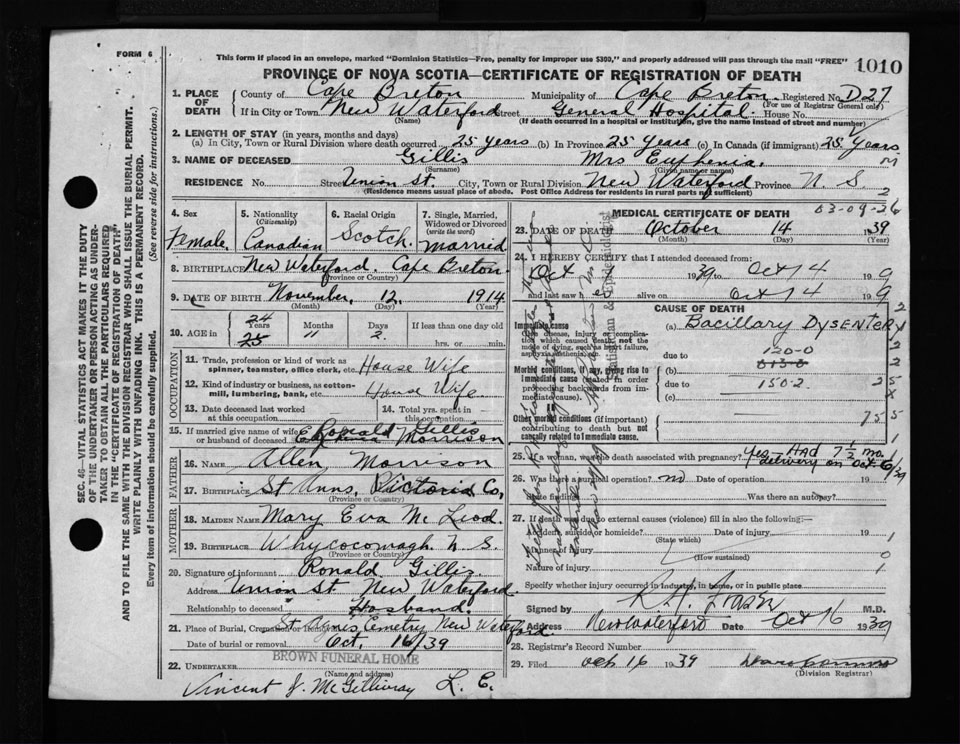 FORM 6
This form if placed in an envelope, marked "Dominion Statistics—Free, penalty for improper use $300," and properly addressed will pass through the mail "FREE"
1010
PROVINCE OF NOVA SCOTIA—CERTIFICATE OF REGISTRATION OF DEATH
1. PLACE OF DEATH { County of Cape Breton Municipality of Cape Breton Registered No. D27
(For use of Registrar General only)
If in City or Town New Waterford Street General Hospital House No.
(Name) (If death occurred in a hospital or institution, give the name instead of street and number)
2. LENGTH OF STAY (in years, months and days)
(a) In City, Town or Rural Division where death occurred 25 years (b) In Province 25 years (c) In Canada (if immigrant) 25 years
3. NAME OF DECEASED Gillis Mrs Euphenia.
(Surname) (Given name or names)
RESIDENCE No. Street Union St. City, Town or Rural Division New Waterford Province N. S.
(Residence means usual place of abode. Post Office Address for residents in rural parts not sufficient)
4. Sex Female
5. Nationality (Citizenship) Canadian
6. Racial Origin Scotch
7. Single, Married, Widowed or Divorced (write the word) Married
8. BIRTHPLACE New Waterford. Cape Breton
(Province or Country)
9. DATE OF BIRTH November 12, 1914
(Month) (Day) (Year)
10. AGE in 24 25 Years 11 Months 2 Days If less than one day old hrs. or min.
OCCUPATION
11. Trade, profession or kind of work as spinner, teamster, office clerk, etc. House Wife
12. Kind of industry or business, as cotton-mill, lumbering, bank, etc. House Wife
13. Date deceased last worked at this occupation
14. Total yrs. spent in this occupation
15. If married give name of wife or husband of deceased Ronald Gillis
Morrison
FATHER
16. NAME Allen Morrison
17. BIRTHPLACE St Anns, Victoria Co,
(Province or Country)
MOTHER
18. MAIDEN NAME Mary Eva Mc Leod.
19. BIRTHPLACE Whycocomagh N. S.
(Province or Country)
20. Signature of informant Ronald Gillis
Address Union St New Waterford
Relationship to deceased Hosband
21. Place of Burial, Cremation or Removal St Agnes Cemetry New Waterford
Date of burial or removal Oct. 16/39
BROWN FUNERAL HOME
22. UNDERTAKER
(Name and address)
Vincent J. McGillivray L. E.
MEDICAL CERTIFICATE OF DEATH
03-09-26
23. DATE OF DEATH October 14 1939
(Month) (Day) (Year)
24. I HEREBY CERTIFY that I attended deceased from:
Oct 1939 to Oct 14 19 9
and last saw her alive on Oct 14 19 9
CAUSE OF DEATH
Immediate cause
Disease, injury or complication which caused death not the mode of dying, such as heart failure, asphyxia, asthenia, etc.
(a) Bacillary DYSENTERY
due to
120-0
(b)
due to 150-2
(c)
Morbid conditions, if any, giving rise to immediate cause (stated in order proceeding backwards from immediate cause).
Other morbid conditions (if important) contributing to death but not causally related to immediate cause.
25. If a woman, was the death associated with pregnancy? Yes—Had 7½ mo. delivery on Oct. 6/39
26. Was there a surgical operation? no Date of operation 19
State findings Was there an autopsy?
27. If death was due to external causes (violence) fill in also the following:—
Accident, suicide or homicide? Date of injury 19
(State which)
Manner of injury
(How sustained)
Nature of injury
Specify whether injury occurred in industry, in home, or in public place
Signed by M.D.
Address New Waterford Date Oct 16 1939
28. Registrar's Record Number
29. Filed Oct 16 1939
(Division Registrar)
SEC. 46—VITAL STATISTICS ACT MAKES IT THE DUTY
OF THE UNDERTAKER OR PERSON ACTING AS UNDER-
TAKER TO OBTAIN ALL THE PARTICULARS REQUIRED
IN THE "CERTIFICATE OF REGISTRATION OF DEATH"
AND TO FILE THE SAME WITH THE DIVISION REGISTRAR WHO SHALL ISSUE THE BURIAL PERMIT.
WRITE PLAINLY WITH UNFADING INK. THIS IS A PERMANENT RECORD.
Every item of information should be carefully supplied. (See reverse side for instructions.)